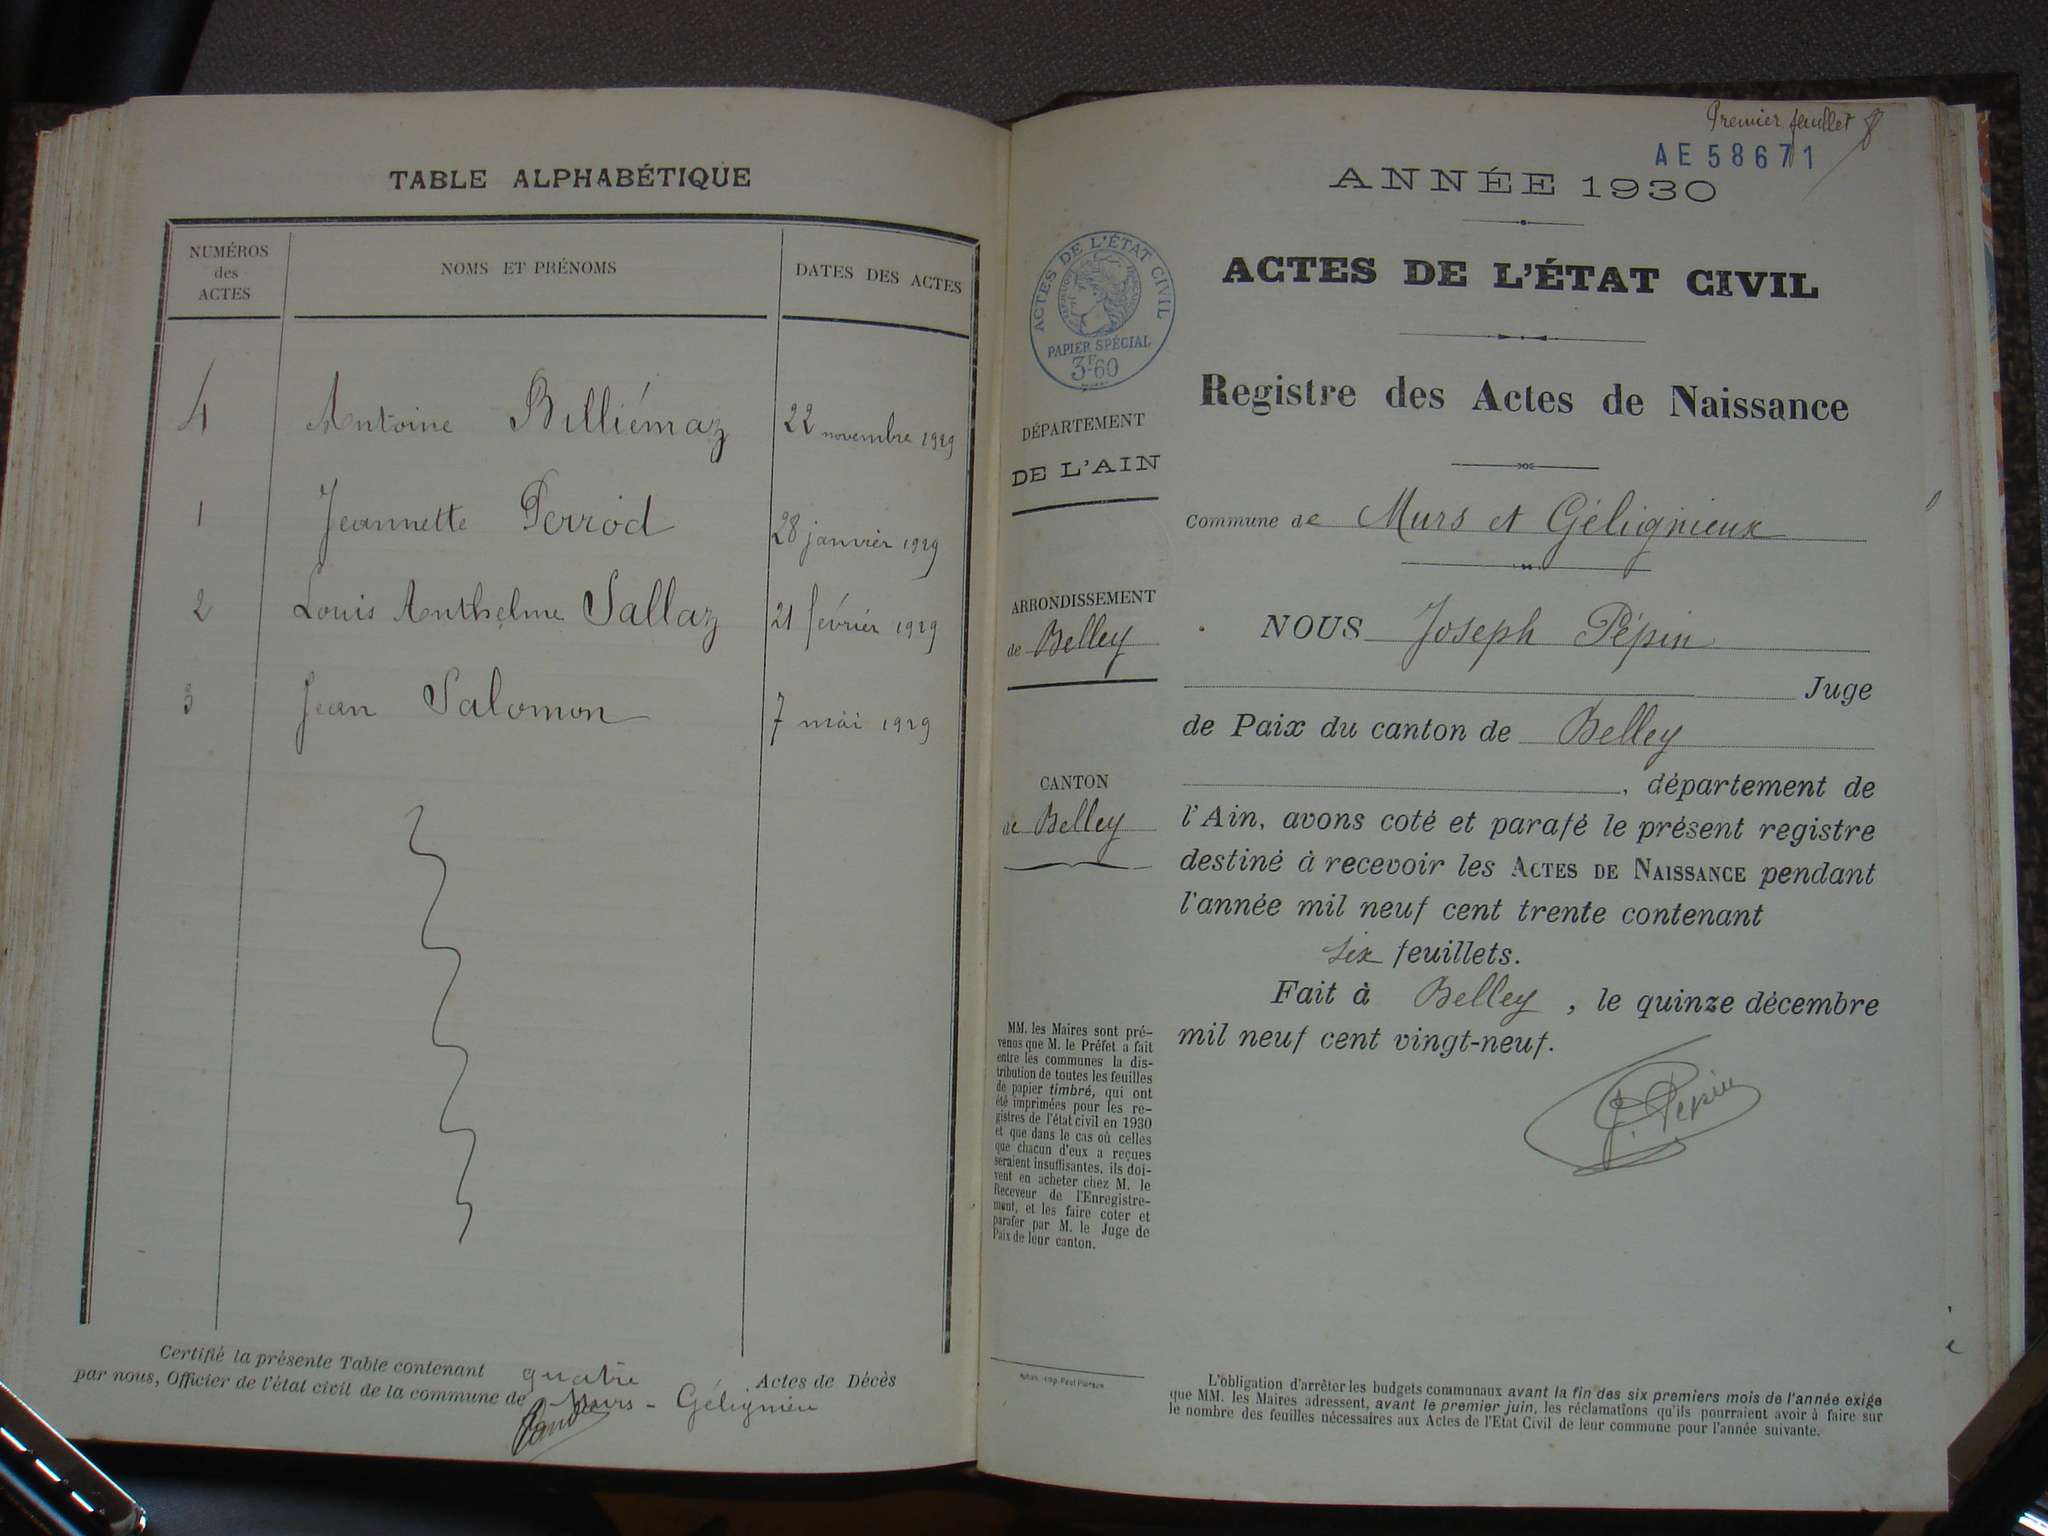 TABLE ALPHABÉTIQUE
NUMÉROS
des
ACTES
NOMS ET PRÉNOMS
DATES DES ACTES
4 Antoine Billiémaz 22 novembre 1929
1 Jeannette Perrod 28 janvier 1929
2 Louis Anthelme Sallaz 21 février 1929
3 Jean Salomon 7 mai 1929
Certifié la présente Table contenant quatre Actes de Décès
par nous, Officier de l'état civil de la commune de Murs - Gélignieu
Premier feuillet
AE 58671
ANNÉE 1930
ACTES DE L'ÉTAT CIVIL
PAPIER SPÉCIAL
3F60
ACTES DE L'ÉTAT CIVIL
Registre des Actes de Naissance
DÉPARTEMENT
DE L'AIN
Commune de Murs et Gélignieux
ARRONDISSEMENT
de Belley
NOUS Joseph Pépin
Juge
de Paix du canton de Belley
CANTON
de Belley
, département de
l'Ain, avons coté et parafé le présent registre
destiné à recevoir les ACTES DE NAISSANCE pendant
l'année mil neuf cent trente contenant
six feuillets.
Fait à Belley, le quinze décembre
mil neuf cent vingt-neuf.
J. Pépin
MM. les Maires sont pré-
venus que M. le Préfet a fait
entre les communes la dis-
tribution de toutes les feuilles
de papier timbré, qui ont
été imprimées pour les re-
gistres de l'état civil en 1930
et que dans le cas où celles
que chacun d'eux a reçues
seraient insuffisantes, ils doi-
vent en acheter chez M. le
Receveur de l'Enregistre-
ment, et les faire coter et
parafer par M. le Juge de
Paix de leur canton.
L'obligation d'arrêter les budgets communaux avant la fin des six premiers mois de l'année exige
que MM. les Maires adressent, avant le premier juin, les réclamations qu'ils pourraient avoir à faire sur
le nombre des feuilles nécessaires aux Actes de l'Etat Civil de leur commune pour l'année suivante.